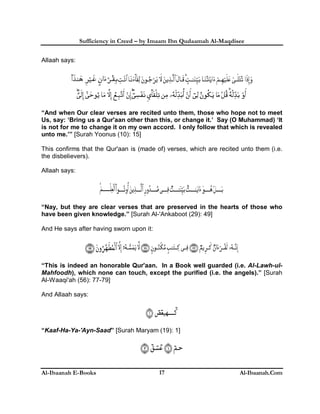 Sufficiency in Creed – by Imaam Ibn Qudaamah Al-Maqdisee
Allaah says:
وَإِذَا تُتْلَىٰ عَلَيْهِمْ ءَايَاتُنَا بَيِّنَـٰتٍ ۙ قَالَ ٱلَّذِينَ لَا يَرْجُونَ لِقَآءَنَا ٱئْتِ بِقُرْءَانٍ غَيْرِ هَـٰذَآ
أَوْ بَدِّلْهُ ۚ قُلْ مَا يَكُونُ لِىٓ أَنْ أُبَدِّلَهُۥ مِن تِلْقَآئِ نَفْسِىٓ ۖ إِنْ أَتَّبِعُ إِلَّا مَا يُوحَىٰٓ إِلَىَّ ۖ
“And when Our clear verses are recited unto them, those who hope not to meet
Us, say: ‘Bring us a Qur'aan other than this, or change it.’ Say (O Muhammad) ‘It
is not for me to change it on my own accord. I only follow that which is revealed
unto me.’” [Surah Yoonus (10): 15]
This confirms that the Qur'aan is (made of) verses, which are recited unto them (i.e.
the disbelievers).
Allaah says:
بَلْ هُوَ ءَايَـٰتٌۢ بَيِّنَـٰتٌ فِى صُدُورِ ٱلَّذِينَ أُوتُوا۟ ٱلْعِلْمَ ۚ
“Nay, but they are clear verses that are preserved in the hearts of those who
have been given knowledge.” [Surah Al-'Ankaboot (29): 49]
And He says after having sworn upon it:
إِنَّهُۥ لَقُرْءَانٌ كَرِيمٌ ﴿٧٧﴾ فِى كِتَـٰبٍ مَّكْنُونٍ ﴿٧٨﴾ لَّا يَمَسُّهُۥٓ إِلَّا ٱلْمُطَهَّرُونَ ﴿٧٩﴾
“This is indeed an honorable Qur'aan. In a Book well guarded (i.e. Al-Lawh-ul-
Mahfoodh), which none can touch, except the purified (i.e. the angels).” [Surah
Al-Waaqi'ah (56): 77-79]
And Allaah says:
كٓهيعٓصٓ ﴿١﴾
“Kaaf-Ha-Ya-'Ayn-Saad” [Surah Maryam (19): 1]
حمٓ ﴿١﴾ عٓسٓقٓ ﴿٢﴾
Al-Ibaanah E-Books 17 Al-Ibaanah.Com